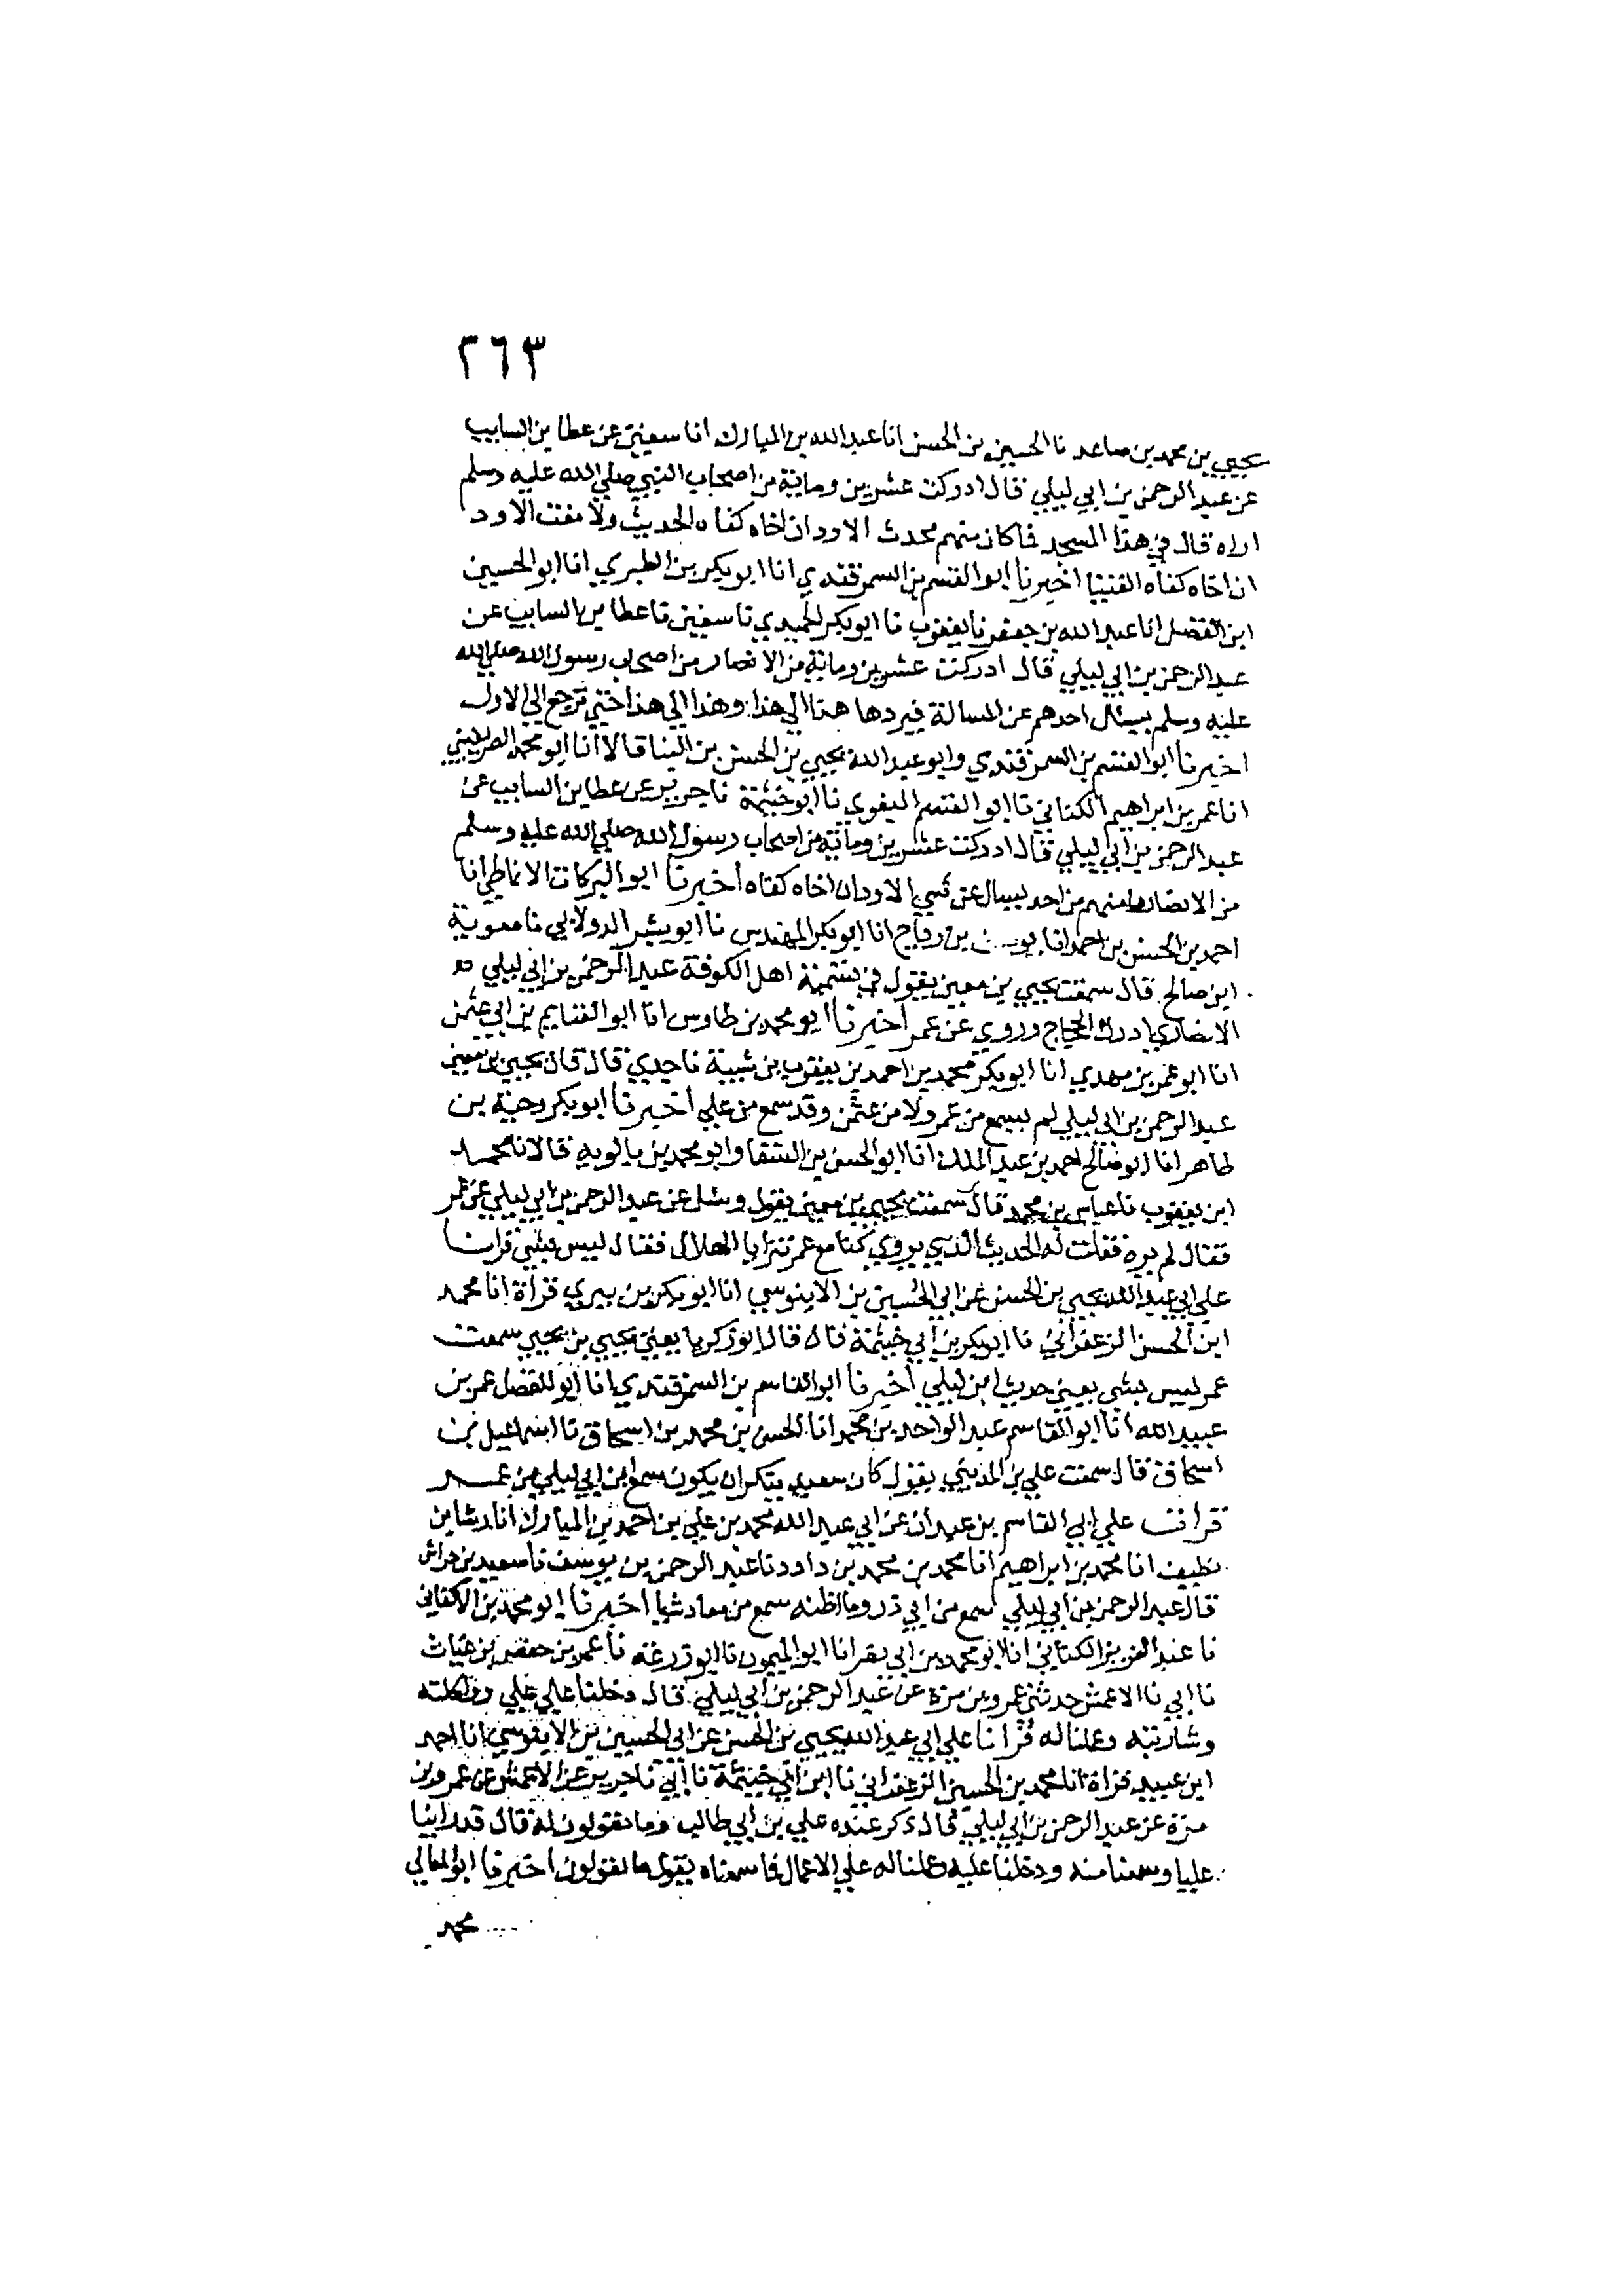 ٢٦٣
يحيي بن محمد بن صاعد نا الحسين بن الحسن انا عبد الله بن المبارك انا سفين عن عطا بن السايب
عن عبد الرحمن بن ابي ليلي قال ادركت عشرين وماية من اصحاب النبي صلي الله عليه وسلم
اراه قال في هذا المسجد فما كان منهم محدث الا ود ان اخاه كفاه الحديث ولا مفت الا ود
ان اخاه كفاه الفتيا اخبرنا ابو القسم بن السمرقندي انا ابو بكر بن الطبري انا ابو الحسين
ابن الفضل انا عبد الله بن جعفر نا يعقوب نا ابو بكر الحميدي نا سفين نا عطا بن السايب عن
عبد الرحمن بن ابي ليلي قال ادركت عشرين وماية من الانصار من اصحاب رسول الله صلي الله
عليه وسلم يسئال احدهم عن المسالة فيردها هذا الي هذا وهذا الي هذا حتي ترجع الي الاول
اخبرنا ابو القسم بن السمرقندي وابو عبد الله يحيي بن الحسن بن البنا قالا انا ابو محمد الصريفيني
انا عمر بن ابراهيم الكتاني نا ابو القسم البغوي نا ابو خيثمة نا جرير عن عطا بن السايب عن
عبد الرحمن بن ابي ليلي قال ادركت عشرين وماية من اصحاب رسول الله صلي الله عليه وسلم
من الانصار ما منهم من احد يسال عن شي الا ود ان اخاه كفاه اخبرنا ابو البركات الانماطي انا
احمد بن الحسن بن احمد انا بن رباح انا ابو بكر المهندس نا ابو بشر الدولابي نا معوية
ابن صالح قال سمعت يحيي بن معين يقول في تسمية اهل الكوفة عبد الرحمن بن ابي ليلي
الانصاري ادرك الحجاج وروي عن عمر اخبرنا ابو محمد بن طاوس انا ابو الغنايم بن ابي عثمن
انا ابو عمر بن مهدي انا ابو بكر محمد بن احمد بن يعقوب بن شيبة نا جدي قال قال يحيي بن معين
عبد الرحمن بن ابي ليلي لم يسمع من عمر ولا من عثمن وقد سمع من علي اخبرنا ابو بكر وجيه بن
طاهر انا ابو صالح احمد بن عبد الملك انا ابو الحسن بن السقا وابو محمد بن بالويه قالا نا محمد
ابن يعقوب نا عباس بن محمد قال سمعت يحيي بن معين يقول وسئل عن عبد الرحمن بن ابي ليلي عن عمر
فقال لم يره فقلت له الحديث الذي يروي كنا مع عمر نترايا الهلال فقال ليس بشي قرانا
علي ابي عبد الله يحيي بن الحسن عن ابي الحسين بن الابنوسي انا ابو بكر بن بيري قراة انا محمد
ابن الحسن الزعفراني نا ابو بكر بن ابي خيثمة قال قال ابو زكريا يعني يحيي بن يحيي سمعت
عمر ليس بشي يعني حديث ابن ليلي اخبرنا ابو القاسم بن السمرقندي انا ابو الفضل عمر بن
عبيد الله انا ابو القاسم عبد الواحد بن محمد انا الحسن بن محمد بن اسحاق نا اسماعيل بن
اسحاق قال سمعت علي بن المديني يقول كان سعيد ينكر ان يكون سمع ابن ابي ليلي من عمر
قرات علي ابي القاسم بن عبدان عن ابي عبد الله محمد بن علي بن احمد بن المبارك انا رشا بن
نظيف انا محمد بن ابراهيم انا محمد بن محمد بن داود نا عبد الرحمن بن يوسف نا سعيد بن خراش
قال عبد الرحمن بن ابي ليلي سمع من ابي ذر وما اظنه سمع من معاذ شيا اخبرنا ابو محمد بن الاكفاني
نا عبد العزيز الكتاني انا ابو محمد بن ابي نصر انا ابو الميمون نا ابو زرعة نا عمر بن حفص بن غياث
نا ابي نا الاعمش حدثني عمرو بن مرة عن عبد الرحمن بن ابي ليلي قال دخلنا علي علي
وشاربته وعملنا له قرانا علي ابي عبد الله يحيي بن الحسن عن ابي الحسين بن الابنوسي انا احمد
ابن عبيد قراة انا محمد بن الحسين الزعفراني نا ابن ابي خيثمة نا ابي نا جرير عن الاعمش عن عمرو بن
مرة عن عبد الرحمن بن ابي ليلي قال ذكر عنده علي بن ابي طالب وما يقولون له قال قد راينا
عليا وسمعنا منه ودخلنا عليه وعملنا له علي الاعمال فما سمعناه يقول ما يقولون اخبرنا ابو المعالي
محمد